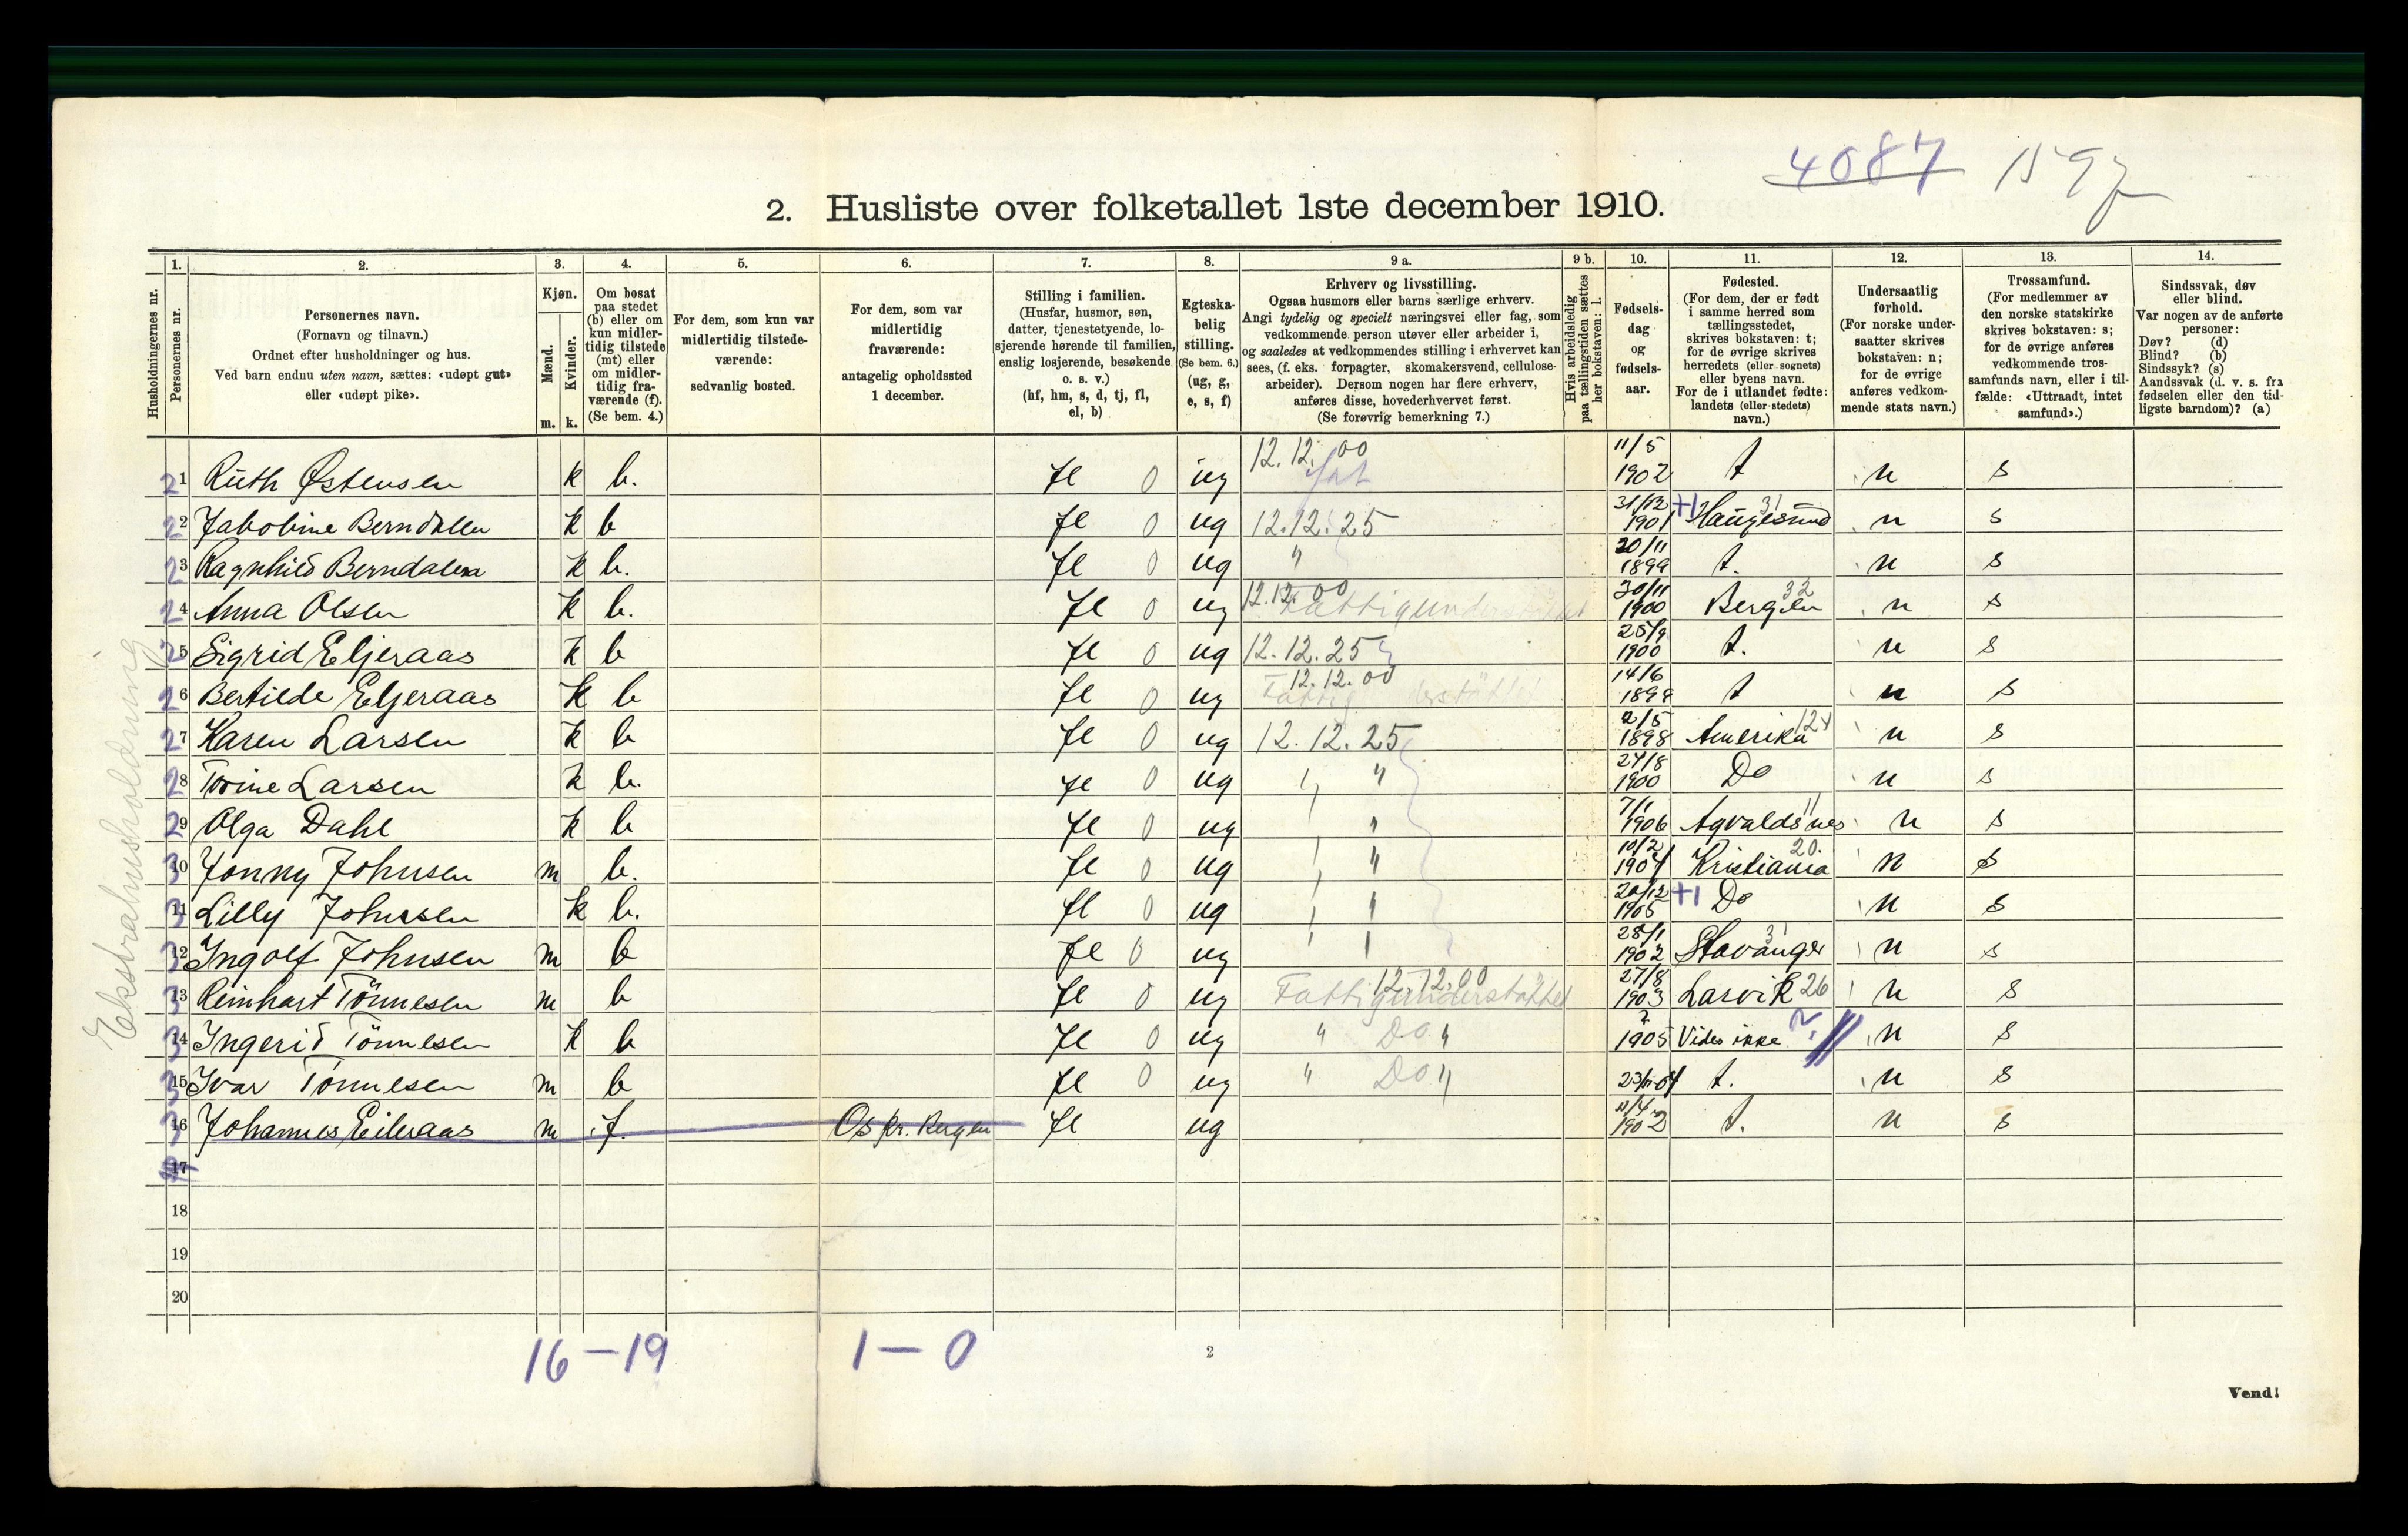 4087 1597
2. Husliste over folketallet 1ste december 1910.
Husholdningernes nr.
1. Personernes nr.
2. Personernes navn.
(Fornavn og tilnavn.)
Ordnet efter husholdninger og hus.
Ved barn endnu uten navn, sættes: «udøpt gut»
eller «udøpt pike».
3. Kjøn.
Mænd. Kvinder.
m. k.
4. Om bosat
paa stedet
(b) eller om
kun midler-
tidig tilstede
(mt) eller
om midler-
tidig fra-
værende (f).
(Se bem. 4.)
5. For dem, som kun var
midlertidig tilstede-
værende:
sedvanlig bosted.
6. For dem, som var
midlertidig
fraværende:
antagelig opholdssted
1 december.
7. Stilling i familien.
(Husfar, husmor, søn,
datter, tjenestetyende, lo-
sjerende hørende til familien,
enslig losjerende, besøkende
o. s. v.)
(hf, hm, s, d, tj, fl,
el, b)
8. Egteska-
belig
stilling.
(Se bem. 6.)
(ug, g,
e, s, f)
9 a. Erhverv og livsstilling.
Ogsaa husmors eller barns særlige erhverv.
Angi tydelig og specielt næringsvei eller fag, som
vedkommende person utøver eller arbeider i,
og saaledes at vedkommendes stilling i erhvervet kan
sees, (f. eks. forpagter, skomakersvend, cellulose-
arbeider). Dersom nogen har flere erhverv,
anføres disse, hovederhvervet først.
(Se forøvrig bemerkning 7.)
9 b. Hvis arbeidsledig
paa tællingstiden sættes
her bokstaven: l.
10. Fødsels-
dag
og
fødsels-
aar.
11. Fødested.
(For dem, der er født
i samme herred som
tællingsstedet,
skrives bokstaven: t;
for de øvrige skrives
herredets (eller sognets)
eller byens navn.
For de i utlandet fødte:
landets (eller stedets)
navn.)
12. Undersaatlig
forhold.
(For norske under-
saatter skrives
bokstaven: n;
for de øvrige
anføres vedkom-
mende stats navn.)
13. Trossamfund.
(For medlemmer av
den norske statskirke
skrives bokstaven: s;
for de øvrige anføres
vedkommende tros-
samfunds navn, eller i til-
fælde: «Uttraadt, intet
samfund».)
14. Sindssvak, døv
eller blind.
Var nogen av de anførte
personer:
Døv? (d)
Blind? (b)
Sindssyk? (s)
Aandssvak (d. v. s. fra
fødselen eller den tid-
ligste barndom)? (a)
Ekstrahusholdning
1 Ruth Østensen k b. fl 0 ug 12.12.00 11/5 1902 t n s
2 Jakobine Berndalen k b fl 0 ug 12.12.25 31/12 1901 +1 Haugesund 31 n s
3 Ragnhild Berndalen k b. fl 0 ug " 20/11 1899 t. n s
4 Anna Olsen k b. fl 0 ug 12.12.00 Fattigunderstøttet 30/11 1900 Bergen 32 n s
5 Sigrid Eljeraas k b fl 0 ug 12.12.25 25/9 1900 t. n s
6 Bertilde Eljeraas k b fl 0 ug 12.12.00 14/6 1898 t n s
7 Karen Larsen k b fl 0 ug 12.12.25 2/5 1898 Amerika 124 n s
8 Torine Larsen k b. fl 0 ug " " 24/8 1900 Do n s
9 Olga Dahl k b fl 0 ug " " 7/1 1906 Agvaldsnes 11 n s
10 Jonny Johnsen m b. fl 0 ug " " 10/2 1904 Kristiania 20. n s
11 Lilly Johnsen k b. fl 0 ug " " 20/12 1905 +1 Do n s
12 Ingolf Johnsen m b fl 0 ug " " 28/1 1902 Stavanger 31 n s
13 Reinhart Tönnesen m b fl 0 ug 12.12.00 Fattigunderstøttet 27/8 1903 Larvik 26 n s
14 Ingerid Tönnesen k b fl 0 ug " Do " ? 1905 Vides ikke ? n s
15 Ivar Tönnesen m b fl 0 ug " Do " 23/11-04 t. n s
16 Johannes Eileraas m f. Os pr. Bergen fl ug 11/4 1902 t. n s
17
18
19
20
16-19 1-0
2
Vend!